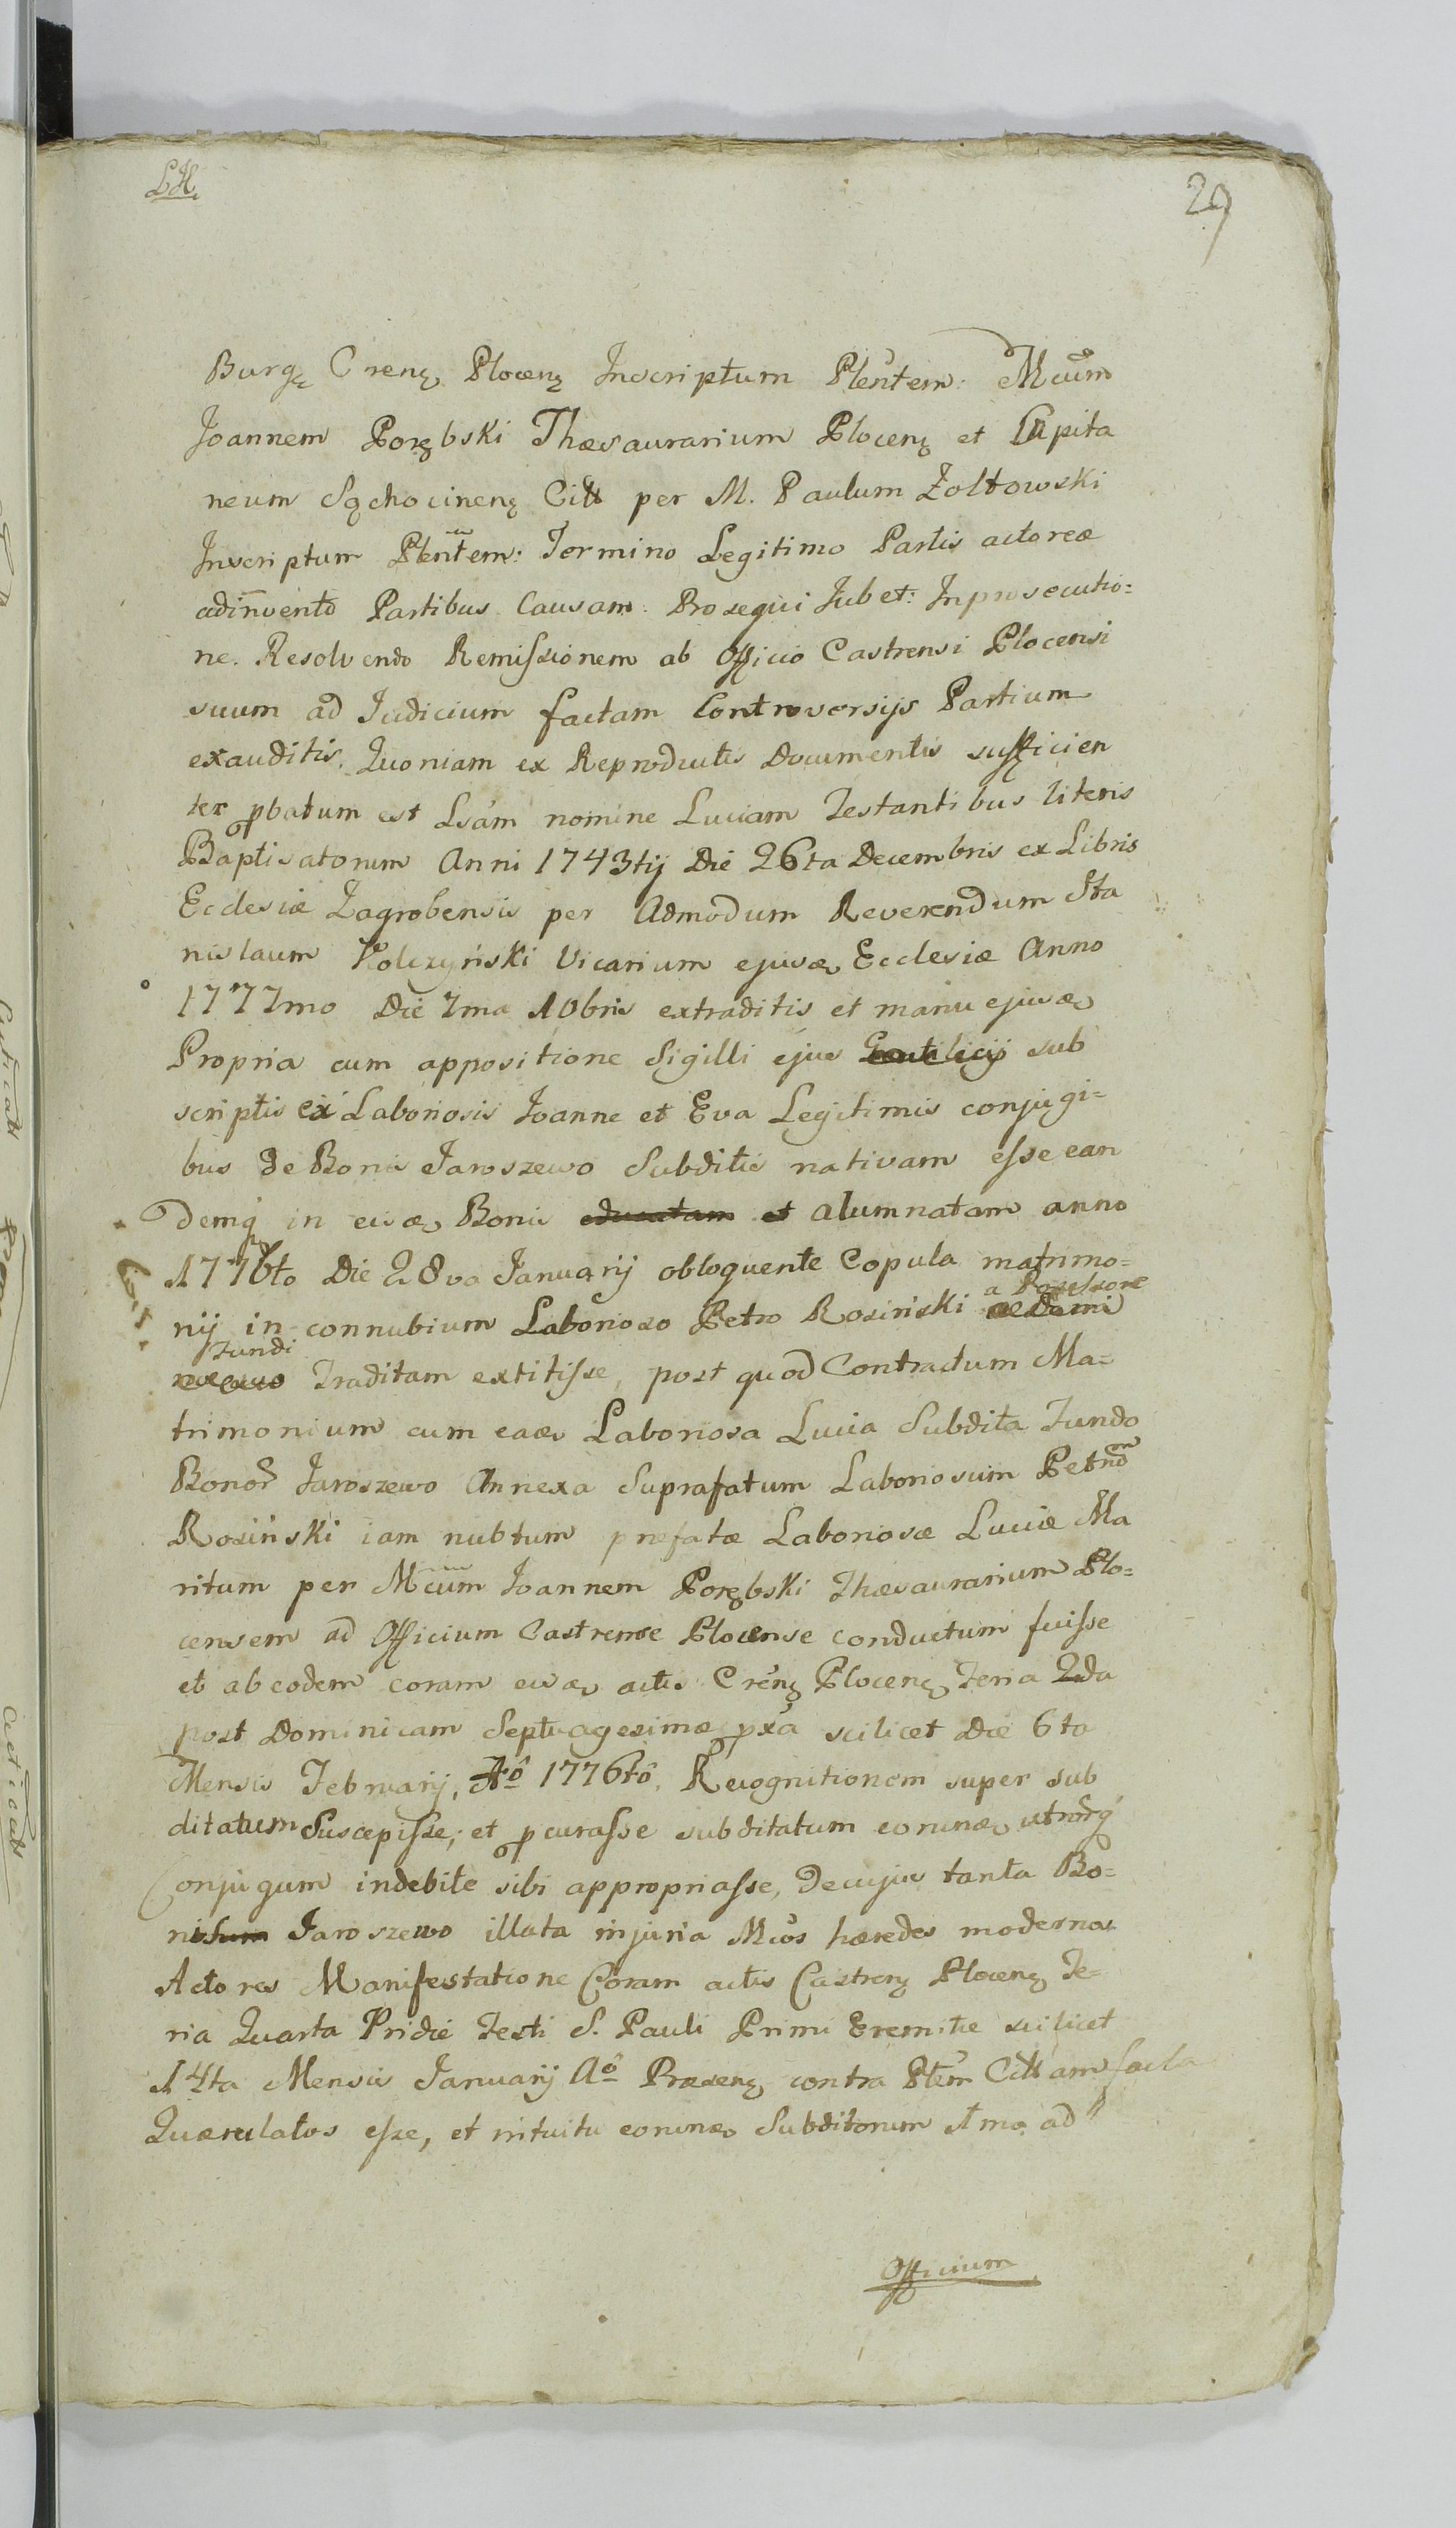 LH.
29
Burgę Crenę Plocenę Inscriptum Plentem: Mcum
Joannem Porębski Thæsaurarium Plocenę et Capita
neum Sąchocinenę Citt per M. Paulum Zoltowski
Inscriptum Plentem: Termino Legitimo Partis actoreæ
adinvento Partibus Causam. Prosequi Jubet: In prosecutio=
ne. Resolvendo Remissionem ab Officio Castrensi Plocensi
suum ad Judicium factam Controversijs Partium
exauditis, Quoniam ex Reproductis Documentis sufficien
ter pbatum est Lsám nomine Luciam Testantibus literis
Baptisatorum Anni 1743tij Die 26ta Decembris ex Libris
Ecclesiæ Zagrobensis per Admodum Reverendum Sta
nislaum Kolczyński Vicarium ejusæ Ecclesiæ Anno
1777mo Die 7ma 10bris extraditis et manu ejusæ
Propria cum appositione Sigilli ejus Gentilicij sub
scriptis ex Laboriosis Joanne et Eva Legitimis conjugi=
bus de Bonis Jaroszewo Subditis nativam esse ean
demq in eisæ Bonis educatam et alumnatam anno
1776to Die 28va Januarij obloquente Copula matrimo=
nij in connubium Laborioso Petro Rosiński a Possessore
Fundi Traditam extitisse, post quod Contractum Ma=
trimonium cum eaæ Laboriosa Lucia Subdita Fundo
Bonor Jaroszewo Annexa Suprafatum Laboriosum Petrum
Rosiński iam nubtum prefatæ Laboriosæ Luciæ Ma
ritum per Mcum Joannem Porębski Thæsaurarium Plo=
censem ad Officium Castrense Plocense conductum fuisse
et ab eodem coram eisæ actis Crenę Plocenę Feria 2da
post Dominicam Septuagesimæ pxa scilicet Die 6ta
Mensis Februarij, Aô 1776tô, Recognitionem super sub
ditatum Suscepisse, et pcurasse subditatum eorumæ utrorq
Conjugum indebite sibi appropriasse, De cujus tanta Bo=
nis Jaroszewo illata injuria Mcos hæredes modernos
Actores Manifestatione Coram actis Castrenę Plocenę Fe=
ria Quarta Pridie Festi S. Pauli Primi Eremitæ scilicet
14ta Mensis Januarij Aô Præsenę contra Ptem Cittam facta
Quærulatos esse, et intuitu eorumæ Subditorum Imo ad
Officium